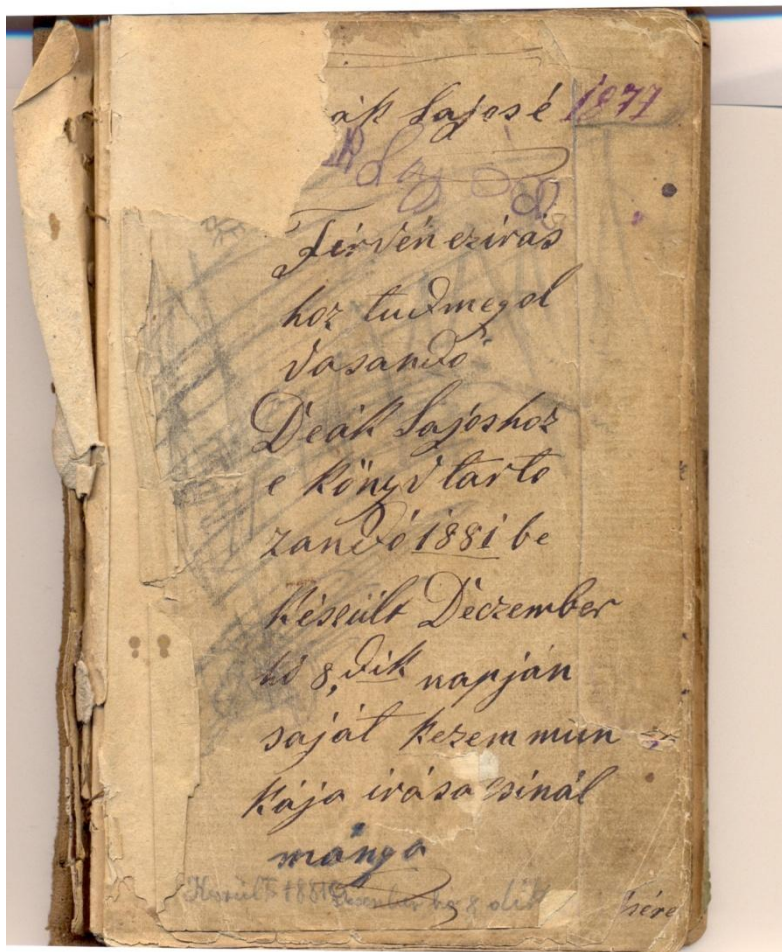 ák Lajosé 1877
Lajos
Törvén ezirás
hoz tudmegol
vasandó
Deák Lajoshoz
e könyv tarto
zandó 1881 be
Készült Deczember
hó 8, dik napján
saját kezem mun
kája irása csinál
mánya
Készült 1881 Deczember hó 8 dik